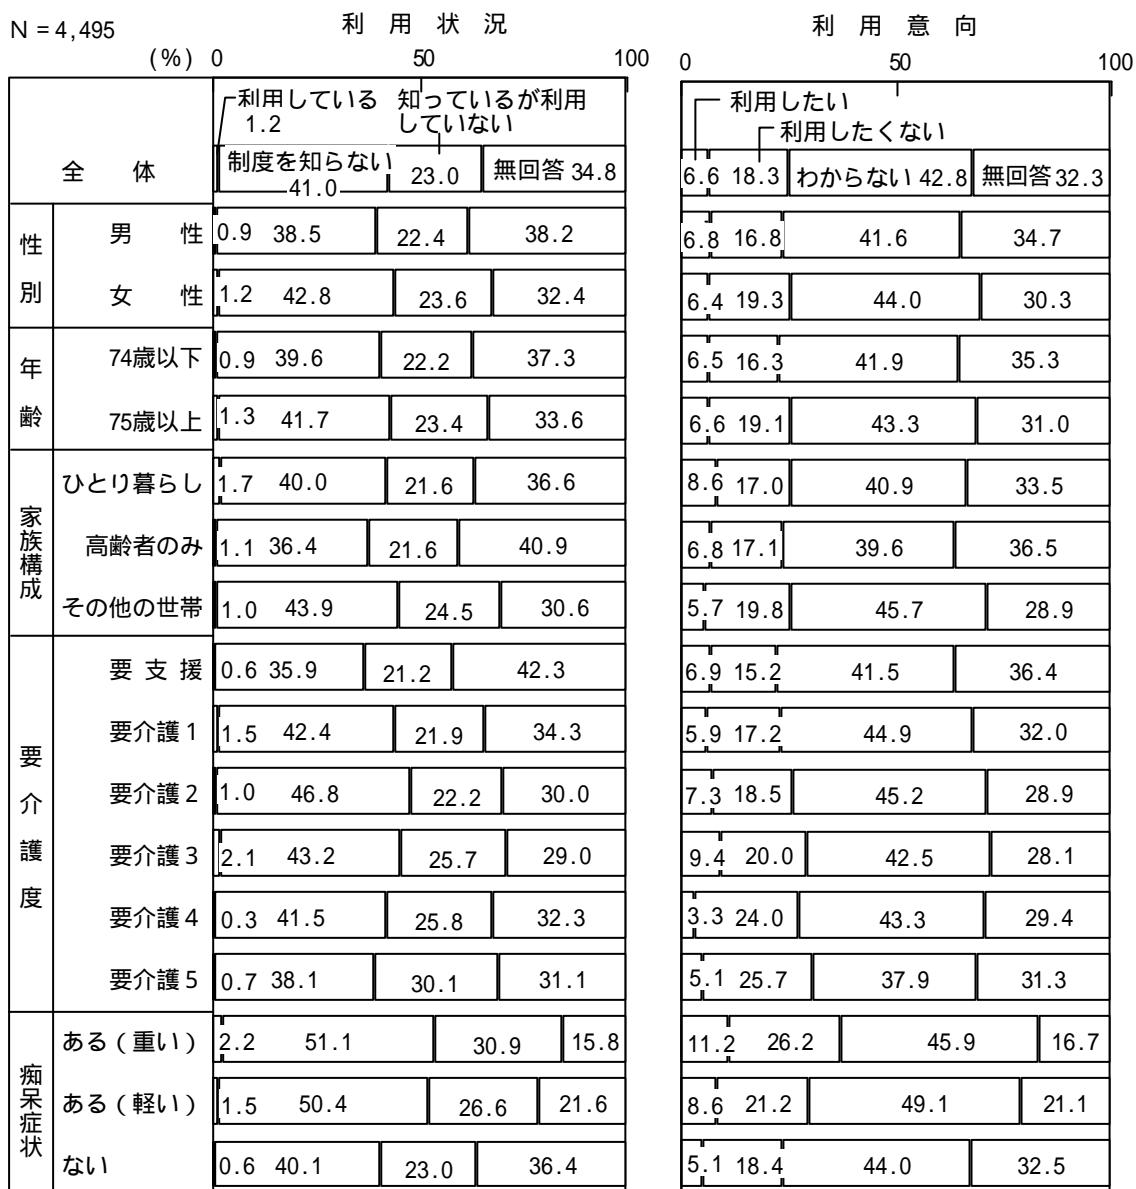 N = 4,495
利用状況 利用意向
(%) 0 50 100 0 50 100
利用している 知っているが利用 利用したい
1.2 していない 利用したくない
全体 制度を知らない 41.0 23.0 無回答 34.8 6.6 18.3 わからない 42.8 無回答 32.3
性別
男性 0.9 38.5 22.4 38.2 6.8 16.8 41.6 34.7
女性 1.2 42.8 23.6 32.4 6.4 19.3 44.0 30.3
年齢
74歳以下 0.9 39.6 22.2 37.3 6.5 16.3 41.9 35.3
75歳以上 1.3 41.7 23.4 33.6 6.6 19.1 43.3 31.0
家族構成
ひとり暮らし 1.7 40.0 21.6 36.6 8.6 17.0 40.9 33.5
高齢者のみ 1.1 36.4 21.6 40.9 6.8 17.1 39.6 36.5
その他の世帯 1.0 43.9 24.5 30.6 5.7 19.8 45.7 28.9
要介護度
要支援 0.6 35.9 21.2 42.3 6.9 15.2 41.5 36.4
要介護1 1.5 42.4 21.9 34.3 5.9 17.2 44.9 32.0
要介護2 1.0 46.8 22.2 30.0 7.3 18.5 45.2 28.9
要介護3 2.1 43.2 25.7 29.0 9.4 20.0 42.5 28.1
要介護4 0.3 41.5 25.8 32.3 3.3 24.0 43.3 29.4
要介護5 0.7 38.1 30.1 31.1 5.1 25.7 37.9 31.3
痴呆症状
ある(重い) 2.2 51.1 30.9 15.8 11.2 26.2 45.9 16.7
ある(軽い) 1.5 50.4 26.6 21.6 8.6 21.2 49.1 21.1
ない 0.6 40.1 23.0 36.4 5.1 18.4 44.0 32.5